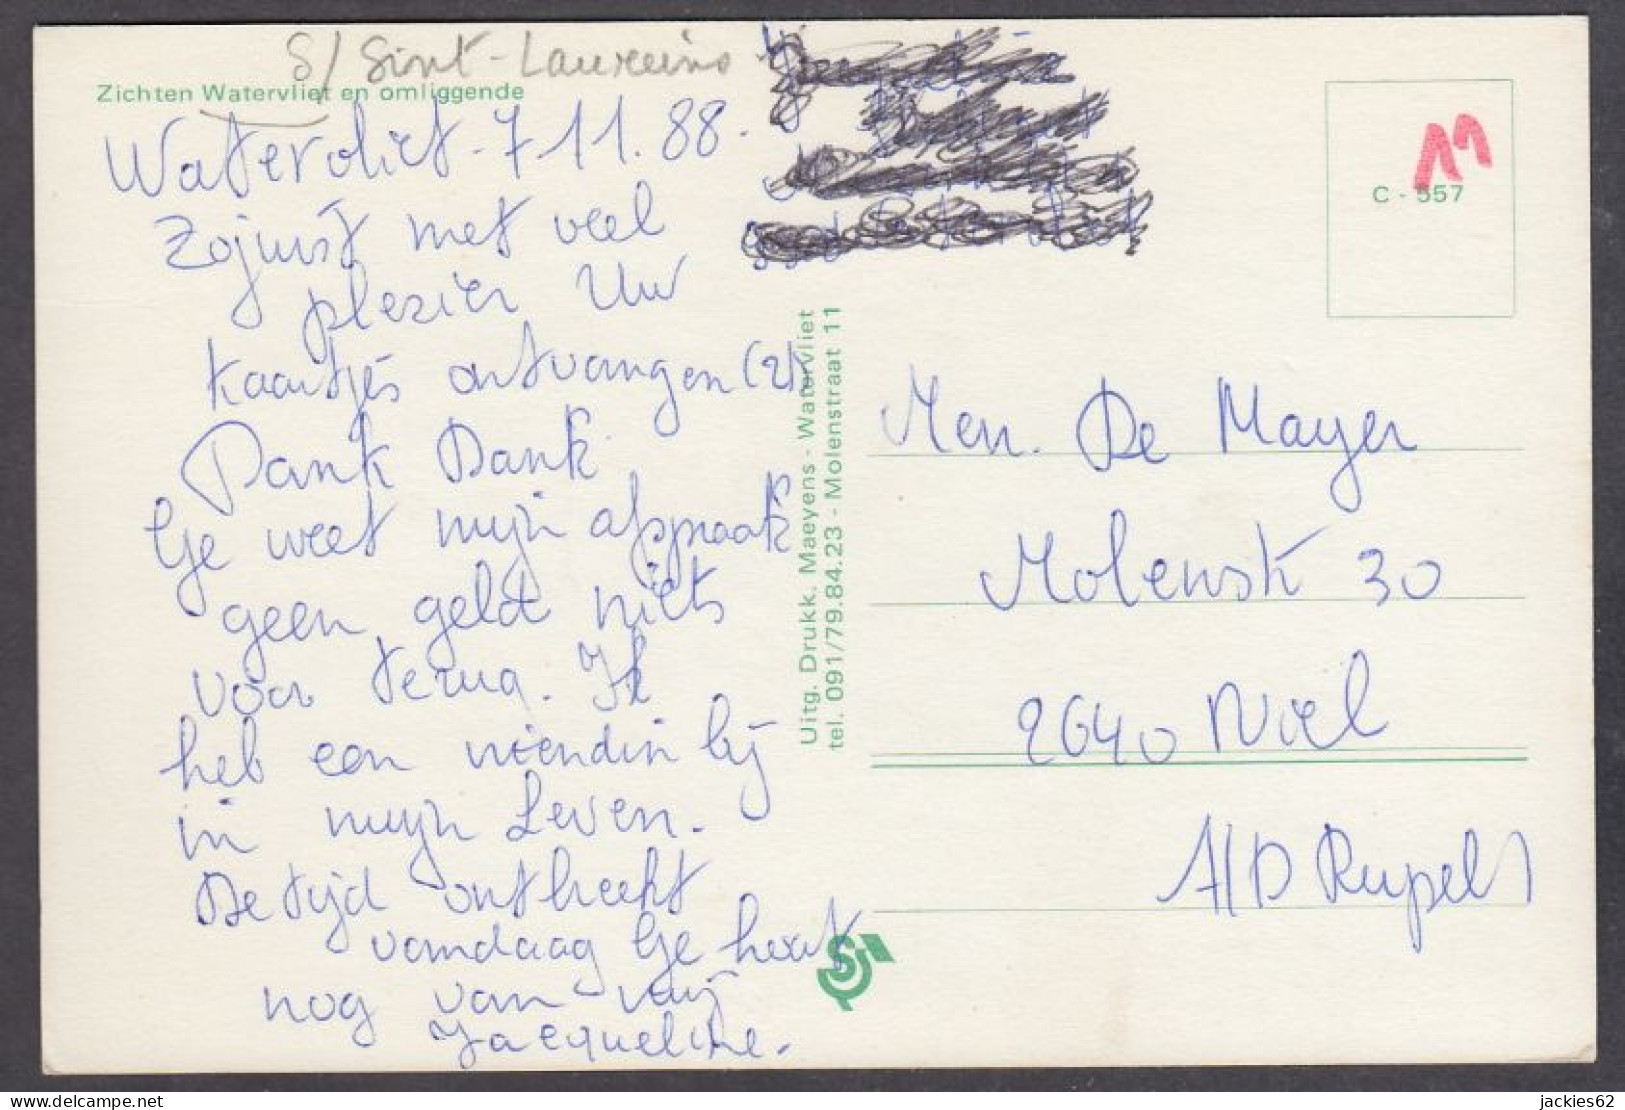 S/ Sint-Laureins
Zichten Watervliet en omliggende
Watervliet - 7 11. 88.
Zojuist met veel
plezier Uw
kaartjes ontvangen (2)
Dank Dank.
Ge weet mijn afspraak
geen geld niets
voor terug. Ik
heb een vriendin bij
in mijn Leven.
De tijd ontbreekt
vandaag Ge hoort
nog van mij
Jacqueline.
Uitg. Drukk. Maeyens - Watervliet
tel. 091/79.84.23 - Molenstraat 11
C - 557
Men. De Mayer
Molenstr 30
2640 Niel
A/D Rupel